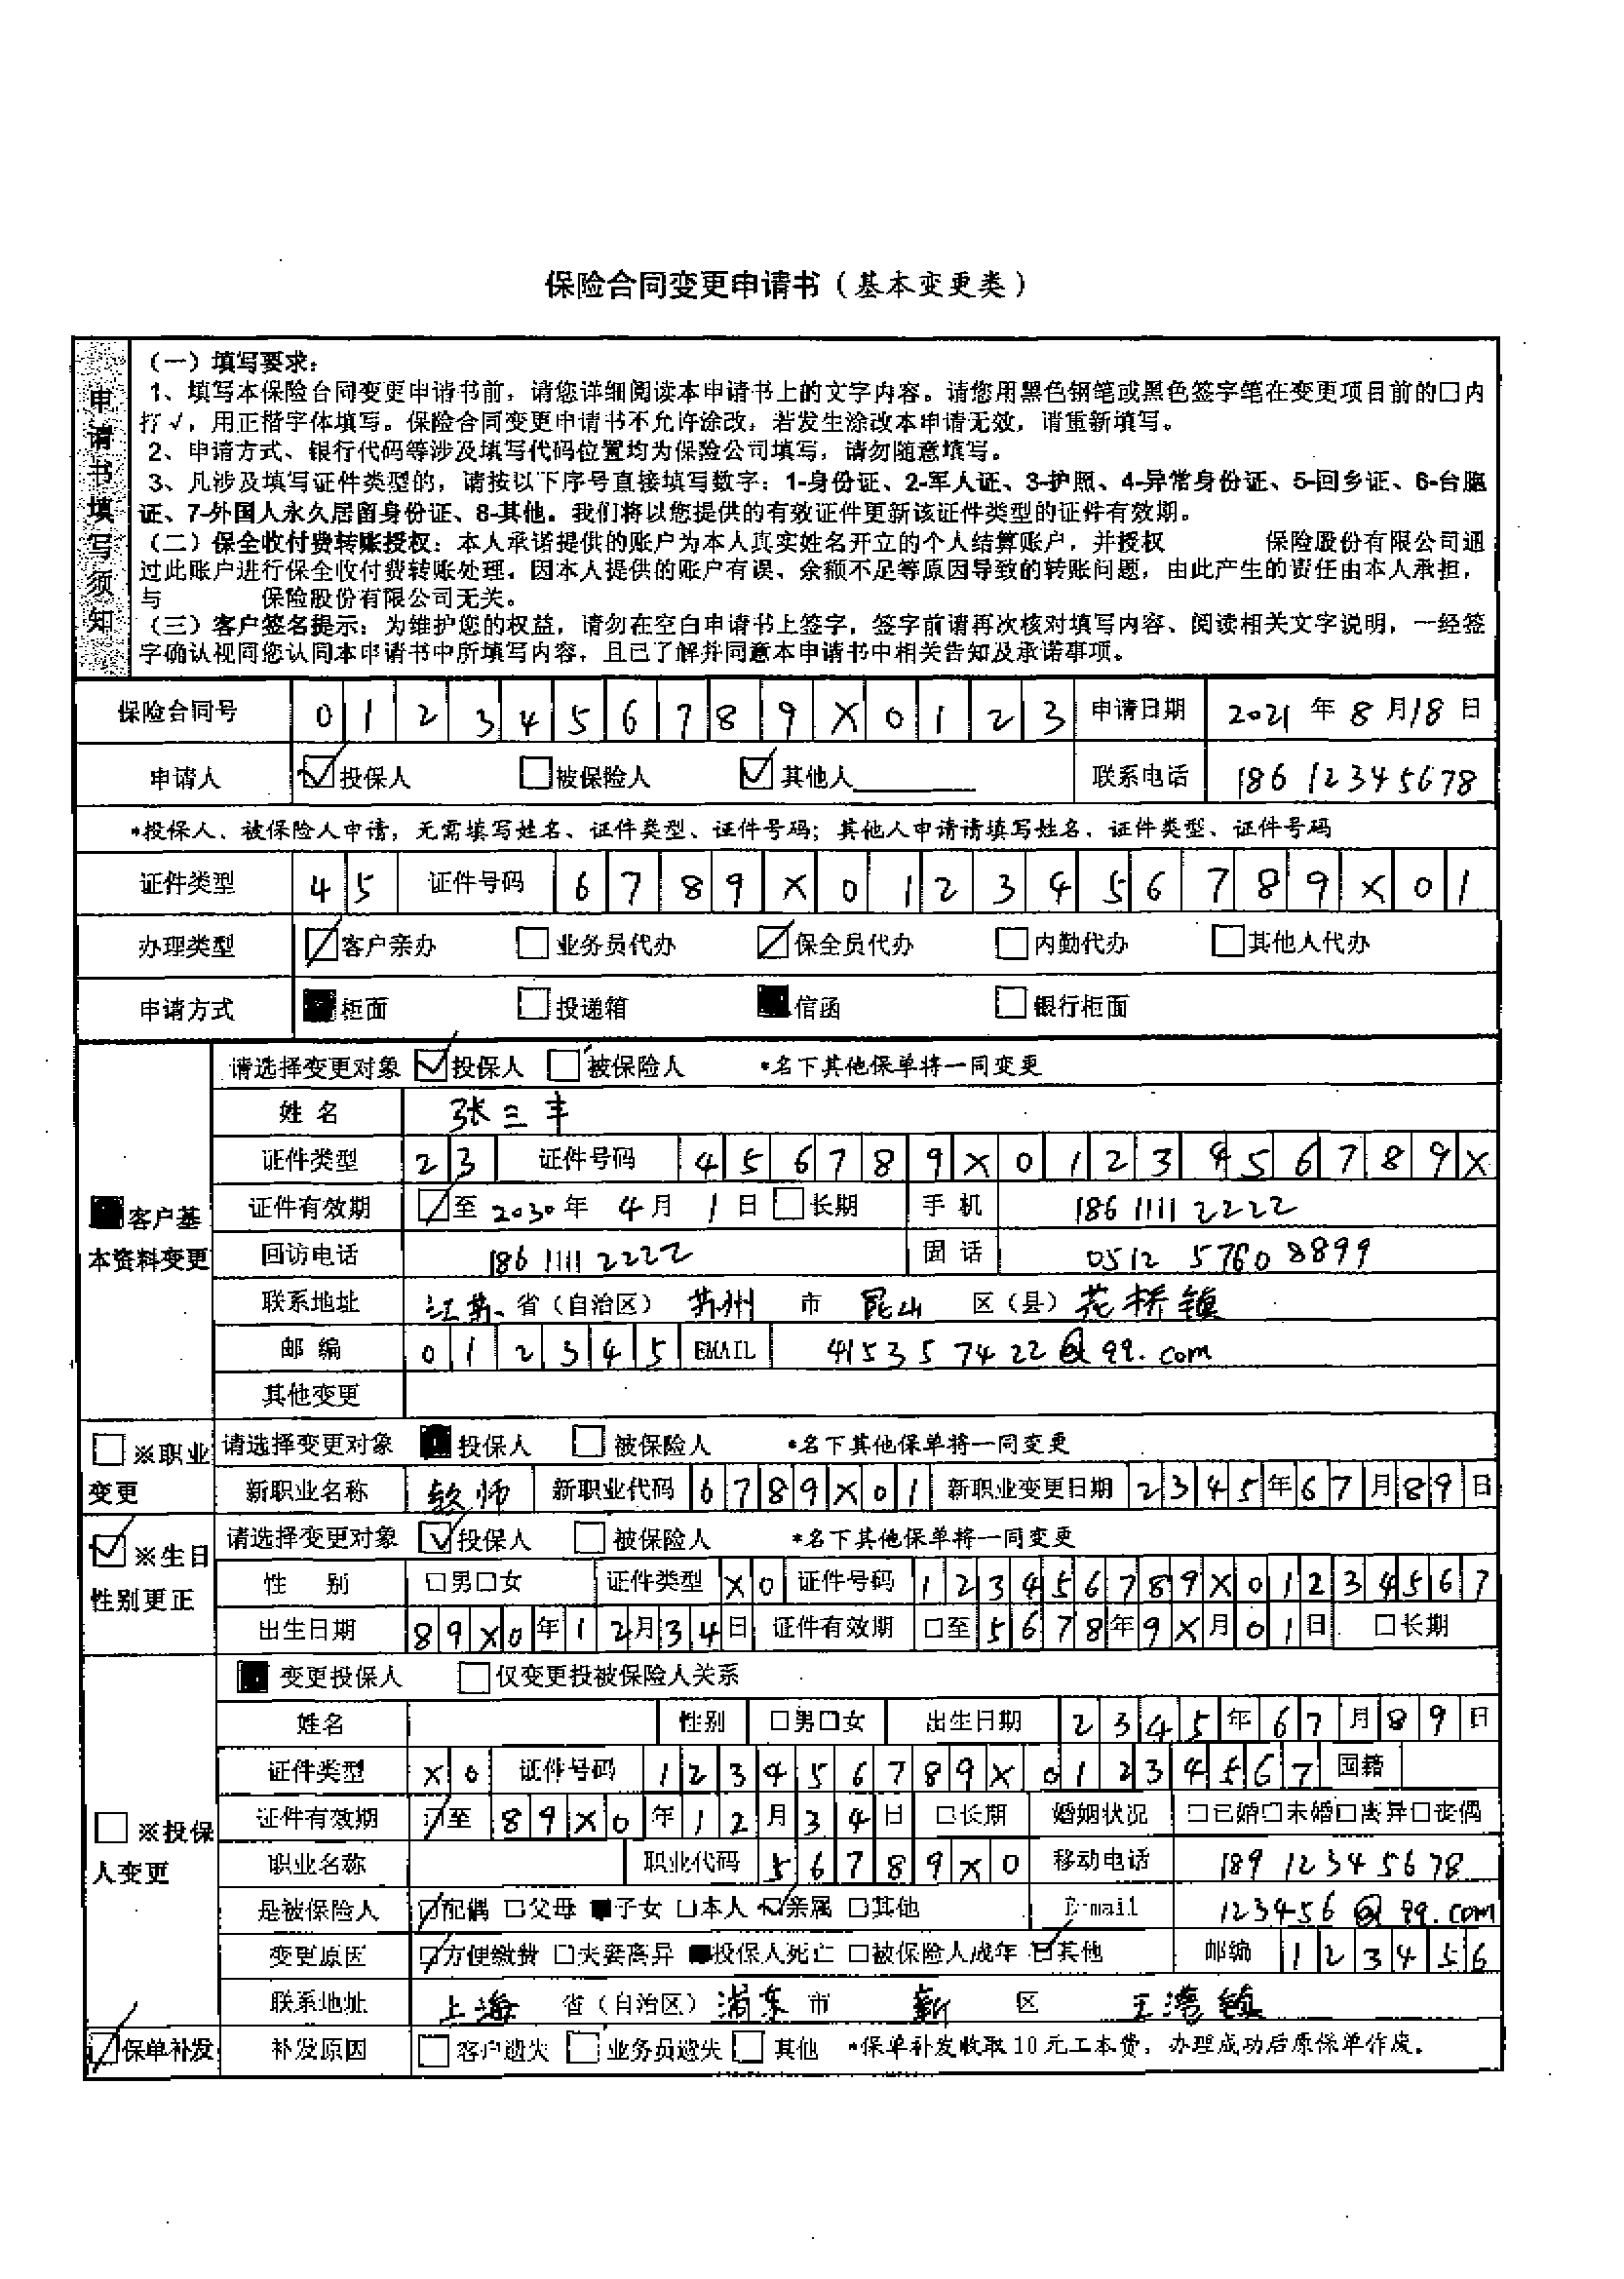 保险合同变更申请书（基本变更类）
申请书填写须知
（一）填写要求：
1、填写本保险合同变更申请书前，请您详细阅读本申请书上的文字内容。请您用黑色钢笔或黑色签字笔在变更项目前的□内
打√，用正楷字体填写。保险合同变更申请书不允许涂改，若发生涂改本申请无效，请重新填写。
2、申请方式、银行代码等涉及填写代码位置均为保险公司填写，请勿随意填写。
3、凡涉及填写证件类型的，请按以下序号直接填写数字：1-身份证、2-军人证、3-护照、4-异常身份证、5-回乡证、6-台胞
证、7-外国人永久居留身份证、8-其他。我们将以您提供的有效证件更新该证件类型的证件有效期。
（二）保全收付费转账授权：本人承诺提供的账户为本人真实姓名开立的个人结算账户，并授权 保险股份有限公司通
过此账户进行保全收付费转账处理。因本人提供的账户有误、余额不足等原因导致的转账问题，由此产生的责任由本人承担，
与 保险股份有限公司无关。
（三）客户签名提示：为维护您的权益，请勿在空白申请书上签字，签字前请再次核对填写内容、阅读相关文字说明，一经签
字确认视同您认同本申请书中所填写内容，且已了解并同意本申请书中相关告知及承诺事项。
保险合同号 0 1 2 3 4 5 6 7 8 9 X 0 1 2 3 申请日期 2021 年 8 月 18 日
申请人 ☑投保人 □被保险人 ☑其他人 联系电话 186 12345678
*投保人、被保险人申请，无需填写姓名、证件类型、证件号码；其他人申请请填写姓名、证件类型、证件号码
证件类型 4 5 证件号码 6 7 8 9 X 0 1 2 3 4 5 6 7 8 9 X 0 1
办理类型 ☑客户亲办 □业务员代办 ☑保全员代办 □内勤代办 □其他人代办
申请方式 ■柜面 □投递箱 ■信函 □银行柜面
■客户基本资料变更
请选择变更对象 ☑投保人 □被保险人 *名下其他保单将一同变更
姓 名 张三丰
证件类型 2 3 证件号码 4 5 6 7 8 9 X 0 1 2 3 4 5 6 7 8 9 X
证件有效期 ☑至 2030 年 4 月 1 日 □长期 手 机 186 1111 2222
回访电话 186 1111 2222 固 话 0512 5760 8899
联系地址 江苏 省（自治区） 苏州 市 昆山 区（县） 花桥镇
邮 编 0 1 2 3 4 5 EMAIL 415357422@qq.com
其他变更
□※职业变更
请选择变更对象 ■投保人 □被保险人 *名下其他保单将一同变更
新职业名称 软师 新职业代码 6 7 8 9 X 0 1 新职业变更日期 2 3 4 5 年 6 7 月 8 9 日
☑※生日性别更正
请选择变更对象 ☑投保人 □被保险人 *名下其他保单将一同变更
性 别 □男□女 证件类型 X 0 证件号码 1 2 3 4 5 6 7 8 9 X 0 1 2 3 4 5 6 7
出生日期 8 9 X 0 年 1 2 月 3 4 日 证件有效期 □至 5 6 7 8 年 9 X 月 0 1 日 □长期
□※投保人变更
■变更投保人 □仅变更投被保险人关系
姓名 性别 □男□女 出生日期 2 3 4 5 年 6 7 月 8 9 日
证件类型 X 0 证件号码 1 2 3 4 5 6 7 8 9 X 0 1 2 3 4 5 6 7 国籍
证件有效期 ☑至 8 9 X 0 年 1 2 月 3 4 日 □长期 婚姻状况 □已婚□未婚□离异□丧偶
职业名称 职业代码 5 6 7 8 9 X 0 移动电话 189 12345678
是被保险人 ☑配偶 □父母 ■子女 □本人 ☑亲属 □其他 E-mail 123456@qq.com
变更原因 ☑方便缴费 □夫妻离异 ■投保人死亡 □被保险人成年 ☑其他 邮编 1 2 3 4 5 6
联系地址 上海 省（自治区） 浦东 市 新 区 王湾镇
☑保单补发 补发原因 □客户遗失 □业务员遗失 □其他 *保单补发收取10元工本费，办理成功后原保单作废。